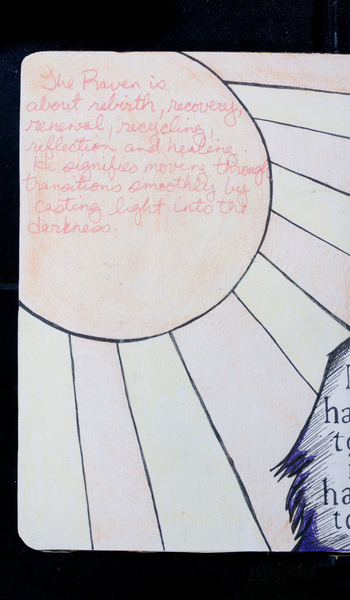 The Raven is
about rebirth, recovery,
renewal, recycling,
reflection and healing.
He signifies moving through
transitions smoothly by
casting light into the
darkness.
ha
to
ha
to